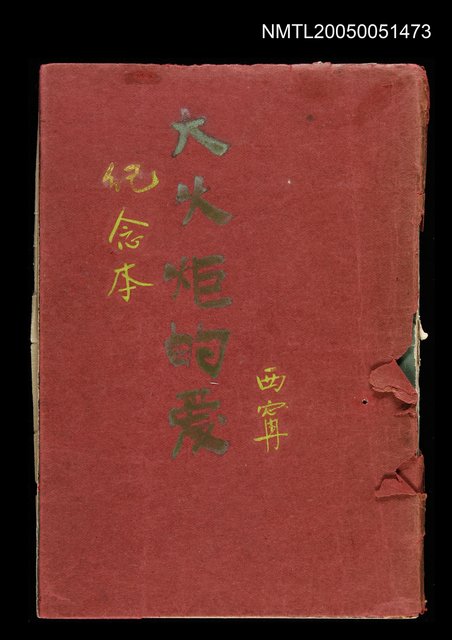 NMTL20050051473
西甯
大火炬的愛
紀念本